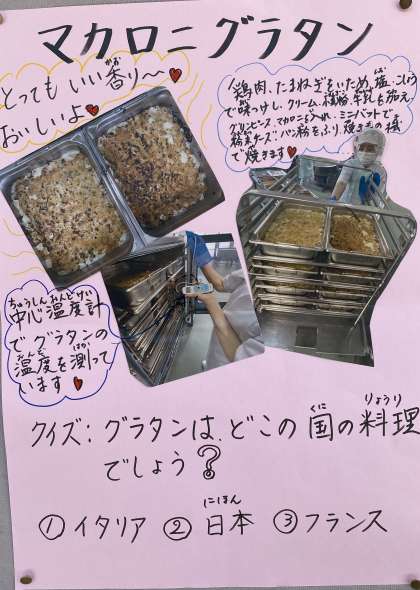 マカロニグラタン
とってもいい香り〜
かお
おいしいよ
鶏肉、たまねぎをいため、塩、こしょう
で味つけし、クリーム、小麦粉、牛乳を加え
グリンピース、マカロニを入れ、ミニバットで
粉末チーズ、パン粉をふり、焼きもの機
で焼きます
ちゅうしんおんどけい
中心温度計
でグラタンの
おんど はか
温度を測って
います
クイズ：グラタンは、どこの国の料理
くに りょうり
でしょう？
にほん
① イタリア ② 日本 ③ フランス